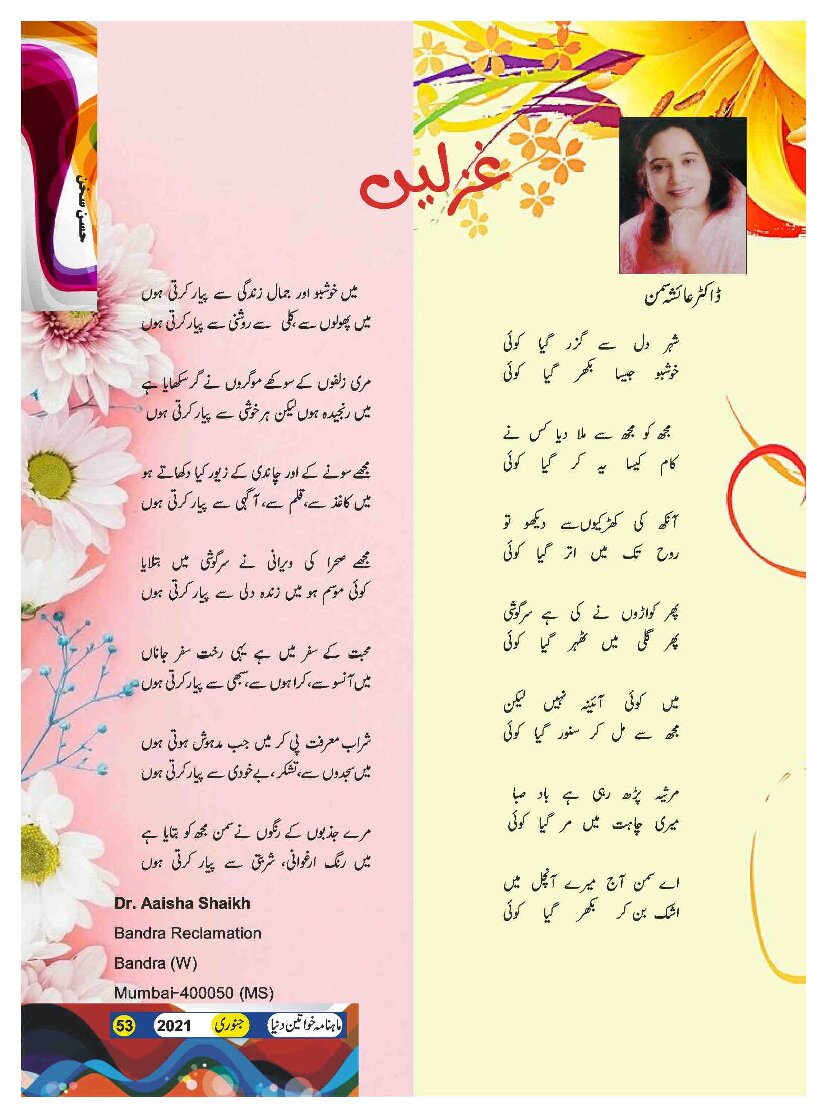 حسن سخن
غزلیں
ڈاکٹر عائشہ سمن
شہر دل سے گزر گیا کوئی
خوشبو جیسا بکھر گیا کوئی
مجھ کو مجھ سے ملا دیا کس نے
کام کیسا یہ کر گیا کوئی
آنکھ کی کھڑکیوں سے دیکھو تو
روح تک میں اتر گیا کوئی
پھر کواڑوں نے کی ہے سرگوشی
پھر گلی میں ٹھہر گیا کوئی
میں کوئی آئینہ نہیں لیکن
مجھ سے مل کر سنور گیا کوئی
مرثیہ پڑھ رہی ہے باد صبا
میری چاہت میں مر گیا کوئی
اے سمن آج میرے آنچل میں
اشک بن کر بکھر گیا کوئی
میں خوشبو اور جمال زندگی سے پیار کرتی ہوں
میں پھولوں سے، کلی سے روشنی سے پیار کرتی ہوں
مری زلفوں کے سوکھے موگروں نے گر سکھایا ہے
میں رنجیدہ ہوں لیکن ہر خوشی سے پیار کرتی ہوں
مجھے سونے کے اور چاندی کے زیور کیا دکھاتے ہو
میں کاغذ سے، قلم سے، آگہی سے پیار کرتی ہوں
مجھے صحرا کی ویرانی نے سرگوشی میں بتلایا
کوئی موسم ہو میں زندہ دلی سے پیار کرتی ہوں
محبت کے سفر میں ہے یہی رخت سفر جاناں
میں آنسو سے، کراہوں سے، سبھی سے پیار کرتی ہوں
شراب معرفت پی کر میں جب مدہوش ہوتی ہوں
میں سجدوں سے، تشکر، بے خودی سے پیار کرتی ہوں
مرے جذبوں کے رنگوں نے سمن مجھ کو بتایا ہے
میں رنگ ارغوانی، شربتی سے پیار کرتی ہوں
Dr. Aaisha Shaikh
Bandra Reclamation
Bandra (W)
Mumbai-400050 (MS)
ماہنامہ خواتین دنیا جنوری 2021 53